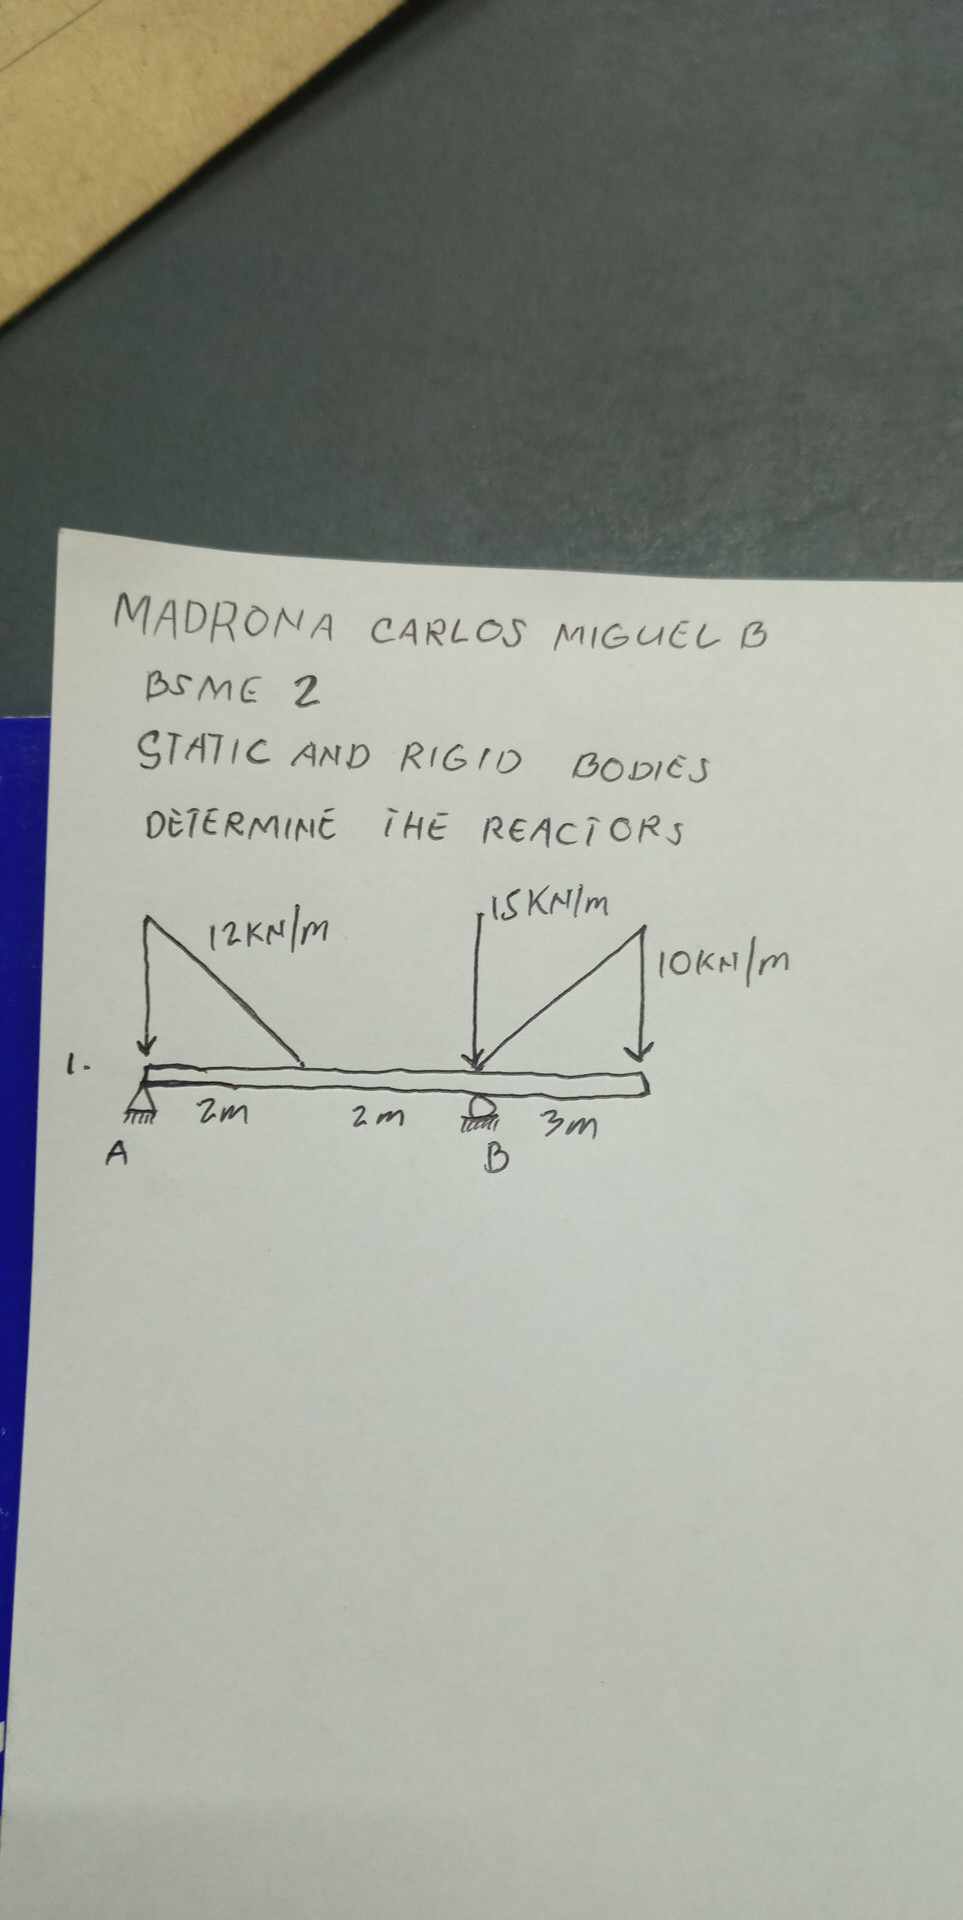 MADRONA CARLOS MIGUEL B
BSME 2
STATIC AND RIGID BODIES
DETERMINE THE REACTORS
15KN/m
12KN/m
10KN/m
1.
2m 2m 3m
A B